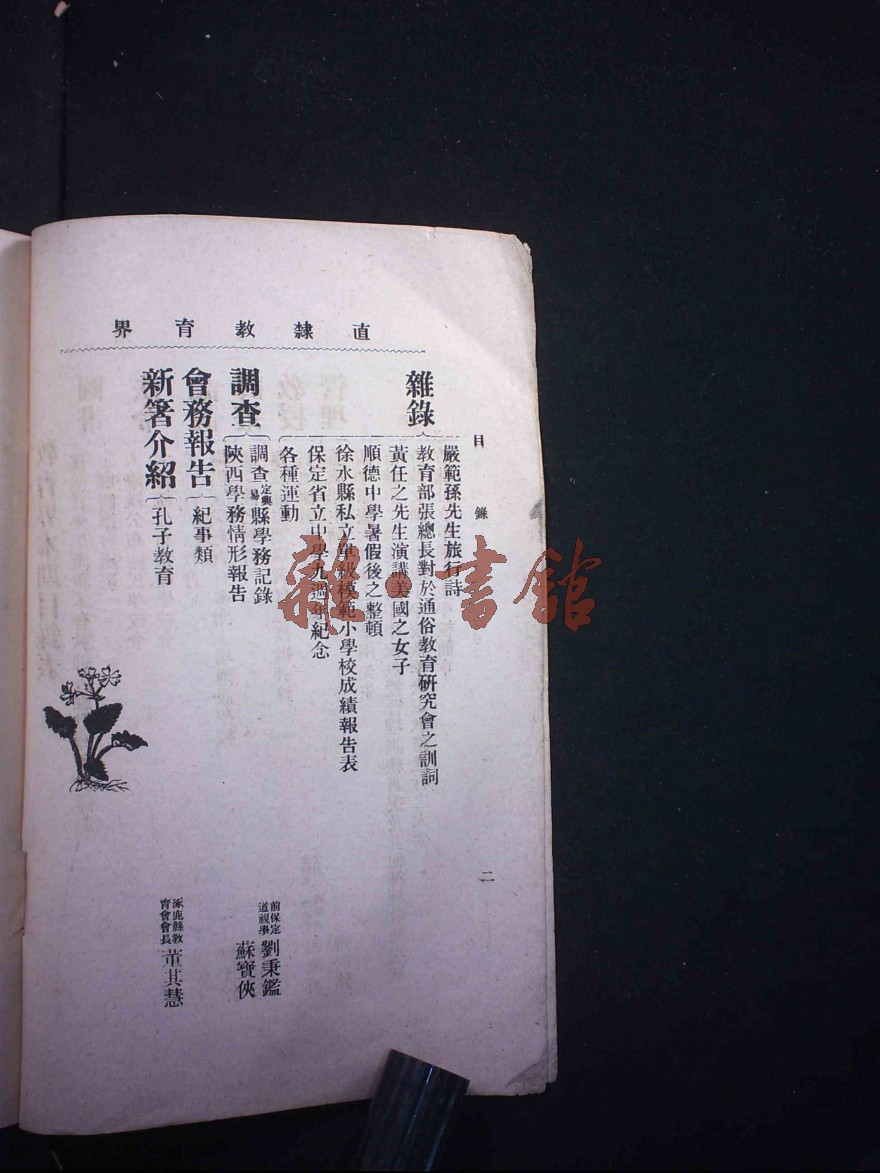 直隸教育界
目錄
二
雜錄
嚴範孫先生旅行詩
教育部張總長對於通俗教育研究會之訓詞
黃任之先生演講美國之女子
順德中學暑假後之整頓
徐水縣私立單級模範小學校成績報告表
保定省立中學九週年紀念
各種運動
調查
調查定興易縣學務記錄
前保定道視學 劉秉鑑
陝西學務情形報告
蘇寶俠
會務報告
紀事類
新箸介紹
孔子教育
涿鹿縣教育會會長 董其慧
雜·書館